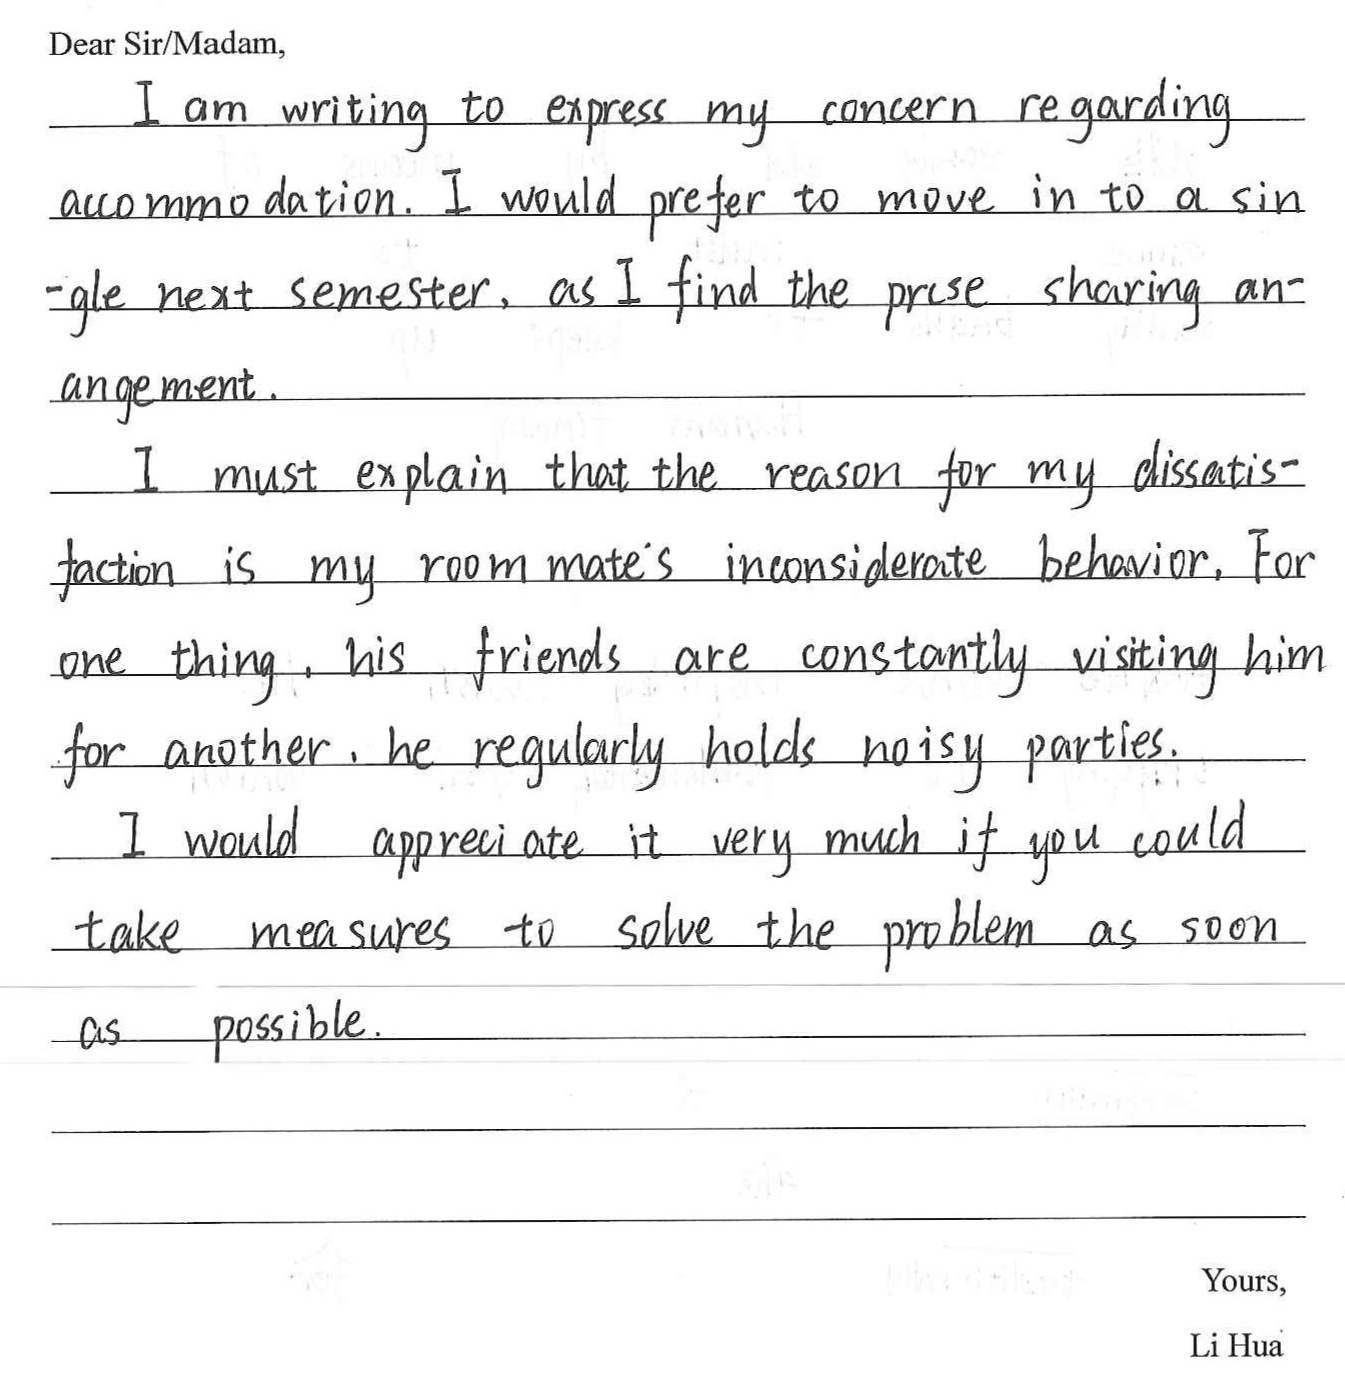 Dear Sir/Madam,
I am writing to express my concern regarding
accommodation. I would prefer to move in to a sin
-gle next semester, as I find the prese sharing an-
angement.
I must explain that the reason for my dissatis-
faction is my roommate's inconsiderate behavior. For
one thing, his friends are constantly visiting him
for another, he regularly holds noisy parties.
I would appreciate it very much if you could
take measures to solve the problem as soon
as possible.
Yours,
Li Hua